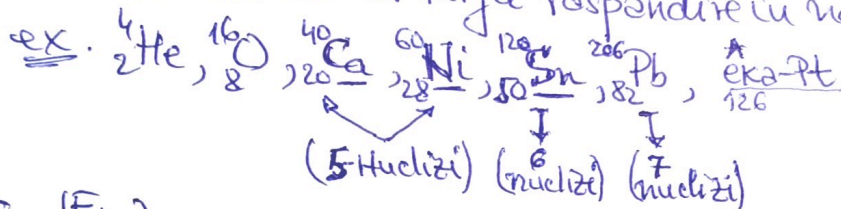 răspândire în
ex. ⁴₂He, ¹⁶₈O, ⁴⁰₂₀Ca, ⁶⁰₂₈Ni, ¹²⁰₅₀Sn, ²⁰⁶₈₂Pb, ᴬ₁₂₆eka-Pt
(5 nuclizi) (6 nuclizi) (7 nuclizi)